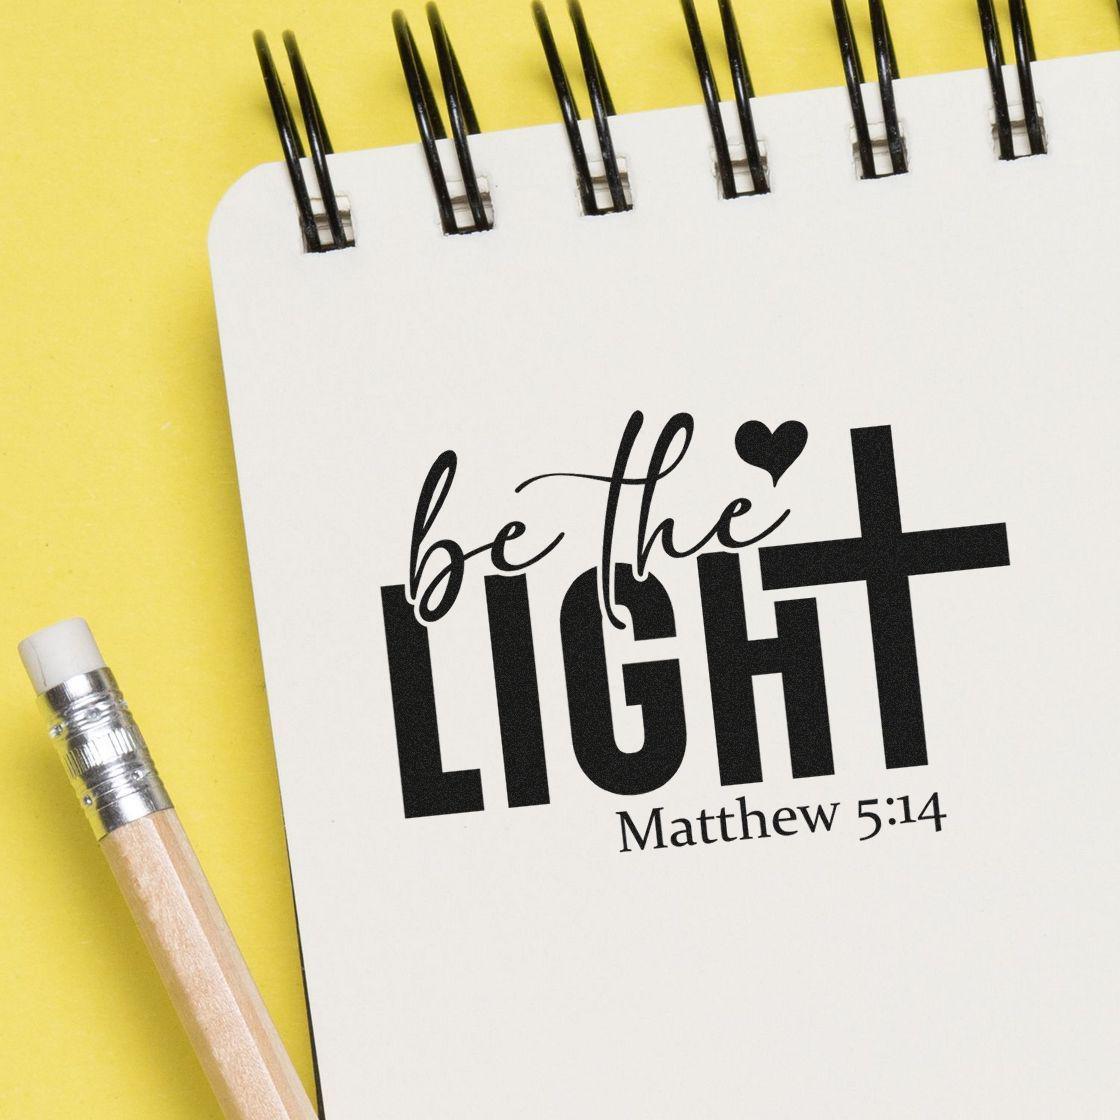 be the
LIGHT
Matthew 5:14